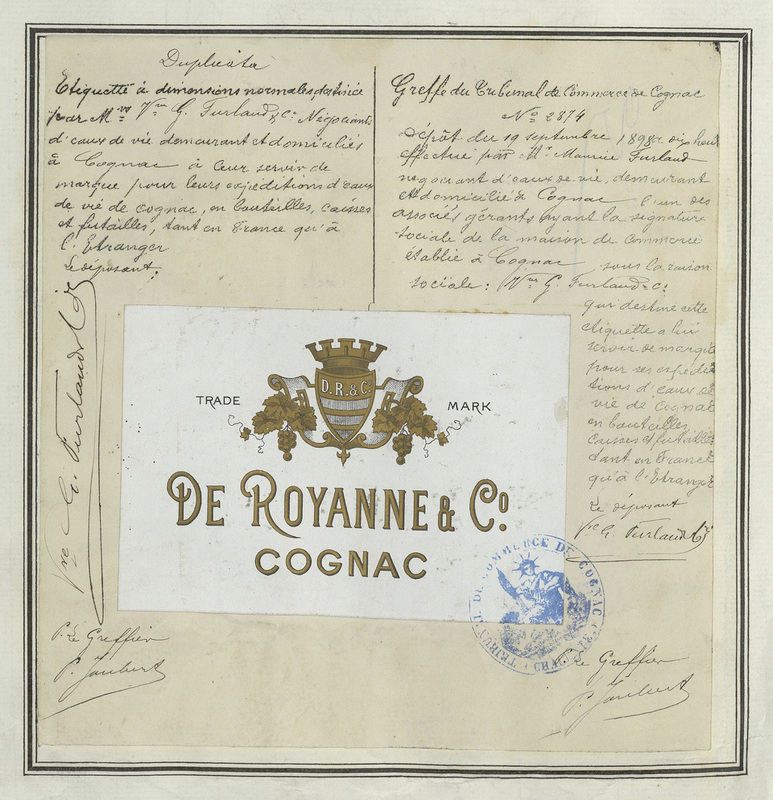 Duplicata
Etiquette à dimensions normales destinée
par M.rs Vve G. Furlaud & Co Négociants
d'eaux de vie demeurant et domiciliés
à Cognac à leur servir de
marque pour leurs expéditions d'eaux
de vie de cognac, en bouteilles, caisses
et futailles, tant en france qu'à
l'Etranger
Le déposant.
Vve G. Furlaud & Co
P. Le Greffier
P. Joubert
Greffe du Tribunal de Commerce de Cognac
No 2874
Dépôt du 19 septembre 1898 dix heures
effectué par Mr Maurice Furlaud
négociant d'eaux de vie, demeurant
et domicilié à Cognac l'un des
associés gérants ayant la signature
sociale de la maison de commerce
établie à Cognac sous la raison
sociale: Vve G. Furlaud & Co
qui destine cette
étiquette à lui
servir de marque
pour ses expédi-
tions d'eaux de
vie de cognac
en bouteilles
caisses et futailles
tant en France
qu'à l'Etranger
Le déposant
Vve G. Furlaud & Co
D.R. & Co.
TRADE MARK
DE ROYANNE & Co.
COGNAC
TRIBUNAL DE COMMERCE DE COGNAC (CHARENTE)
P. Le Greffier
P. Joubert